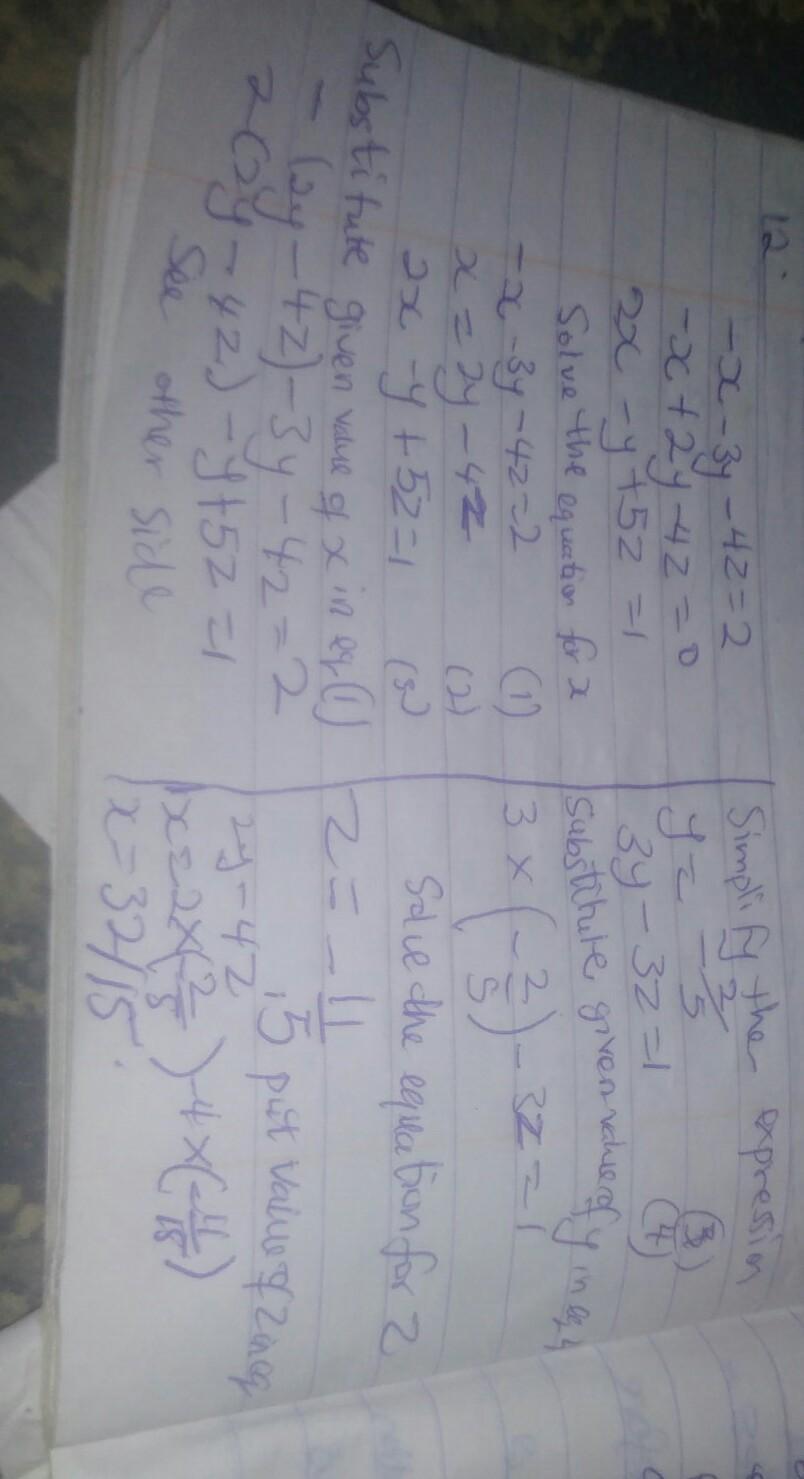 12.
-x-3y-4z=2
-x+2y-4z=0
2x-y+5z=1
Solve the equation for x
-x-3y-4z=2 (1)
x=2y-4z (2)
2x-y+5z=1 (3)
Substitute given value of x in eq(1)
-(2y-4z)-3y-4z=2
2(2y-4z)-y+5z=1
See other side
Simplify the expression
y=-2/5 (3)
3y-3z=1 (4)
Substitute given value of y in eq 4
3×(-2/5)-3z=1
Solve the equation for z
z=-11/15 put value of z in eq
2y-4z
x=2×(-2/5)-4×(-11/15)
x=32/15.